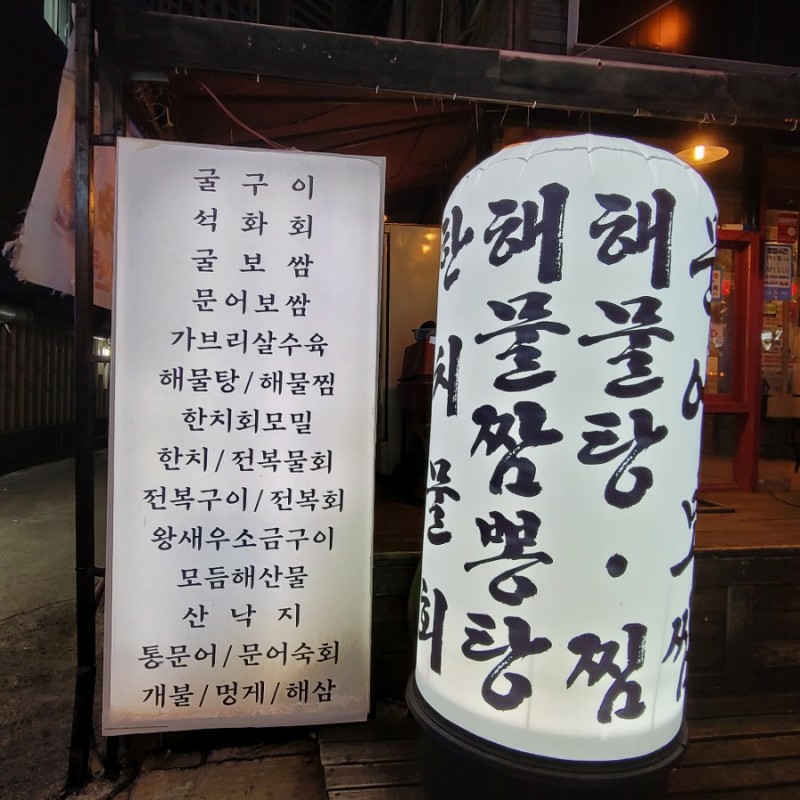 굴 구 이
석 화 회
굴 보 쌈
문어보쌈
가브리살수육
해물탕/해물찜
한치회모밀
한치/전복물회
전복구이/전복회
왕새우소금구이
모듬해산물
산 낙 지
통문어/문어숙회
개불/멍게/해삼
한치물회
해물짬뽕탕
해물탕·찜
문어보쌈